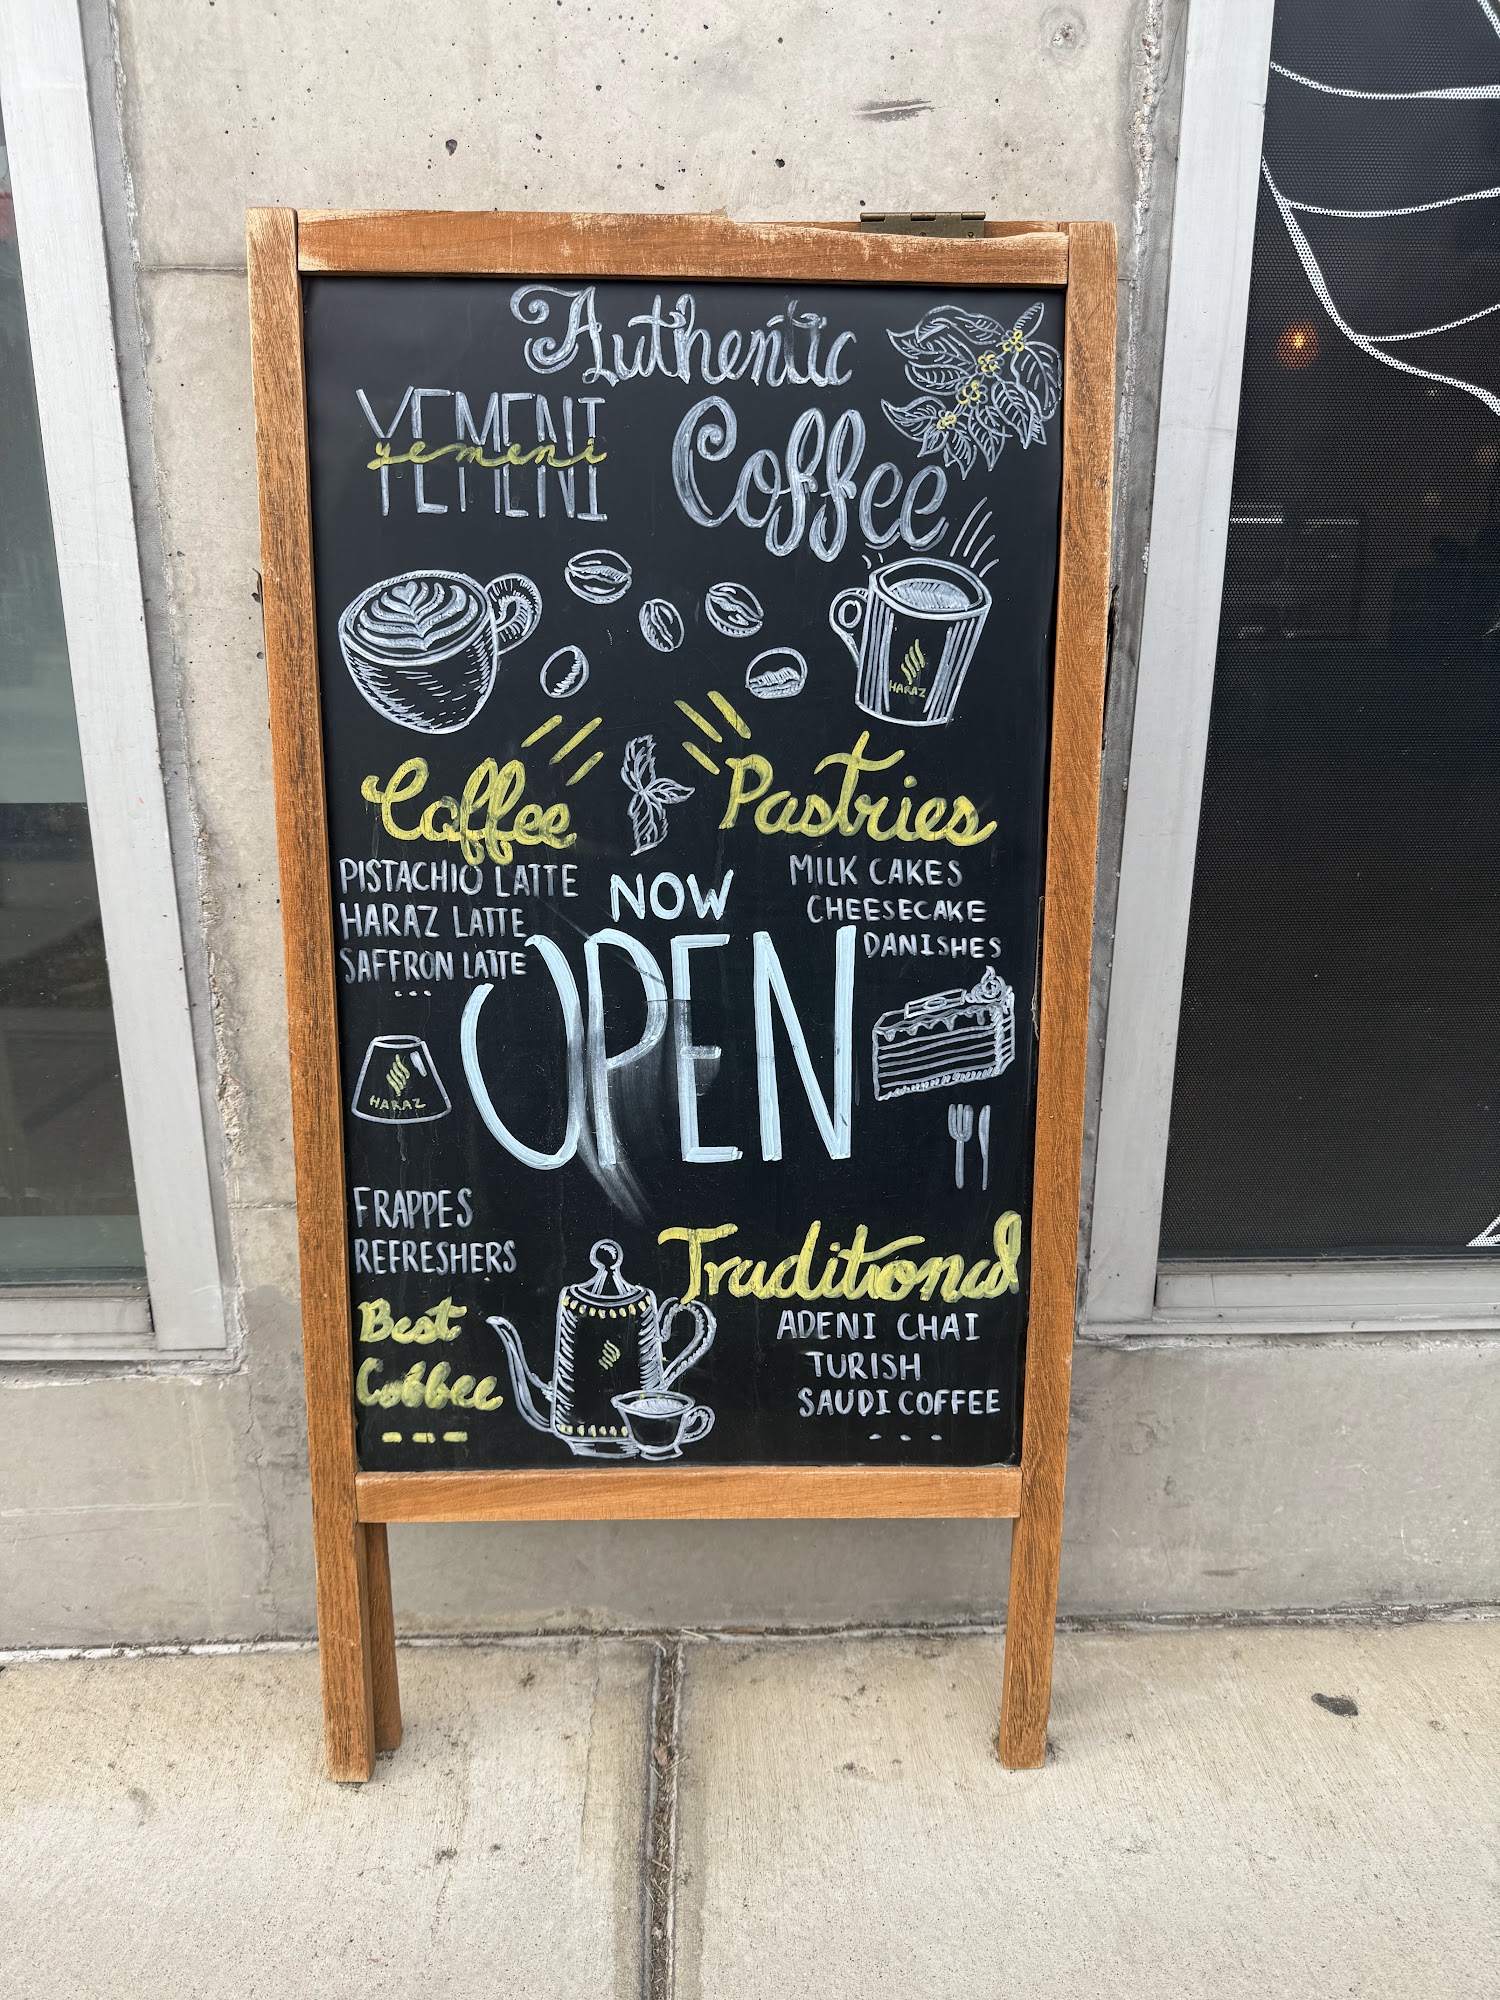 Authentic
YEMENI
yemeni
Coffee
HARAZ
Coffee
PISTACHIO LATTE
HARAZ LATTE
SAFFRON LATTE
...
Pastries
MILK CAKES
CHEESECAKE
DANISHES
NOW
OPEN
HARAZ
FRAPPES
REFRESHERS
Best
Coffee
---
Traditional
ADENI CHAI
TURISH
SAUDI COFFEE
...